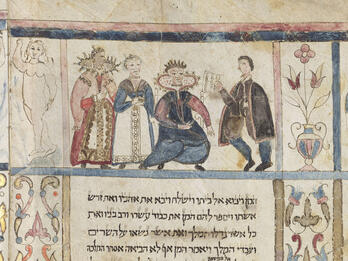 המן ויבוא אל ביתו וישלח ויבא את אהביו ואת זרש
אשתו ויספר להם המן את כבוד עשרו ורב בניו ואת
כל אשר גדלו המלך ואת אשר נשאו על השרים
ועבדי המלך ויאמר המן אף לא הביאה אסתר המלכה